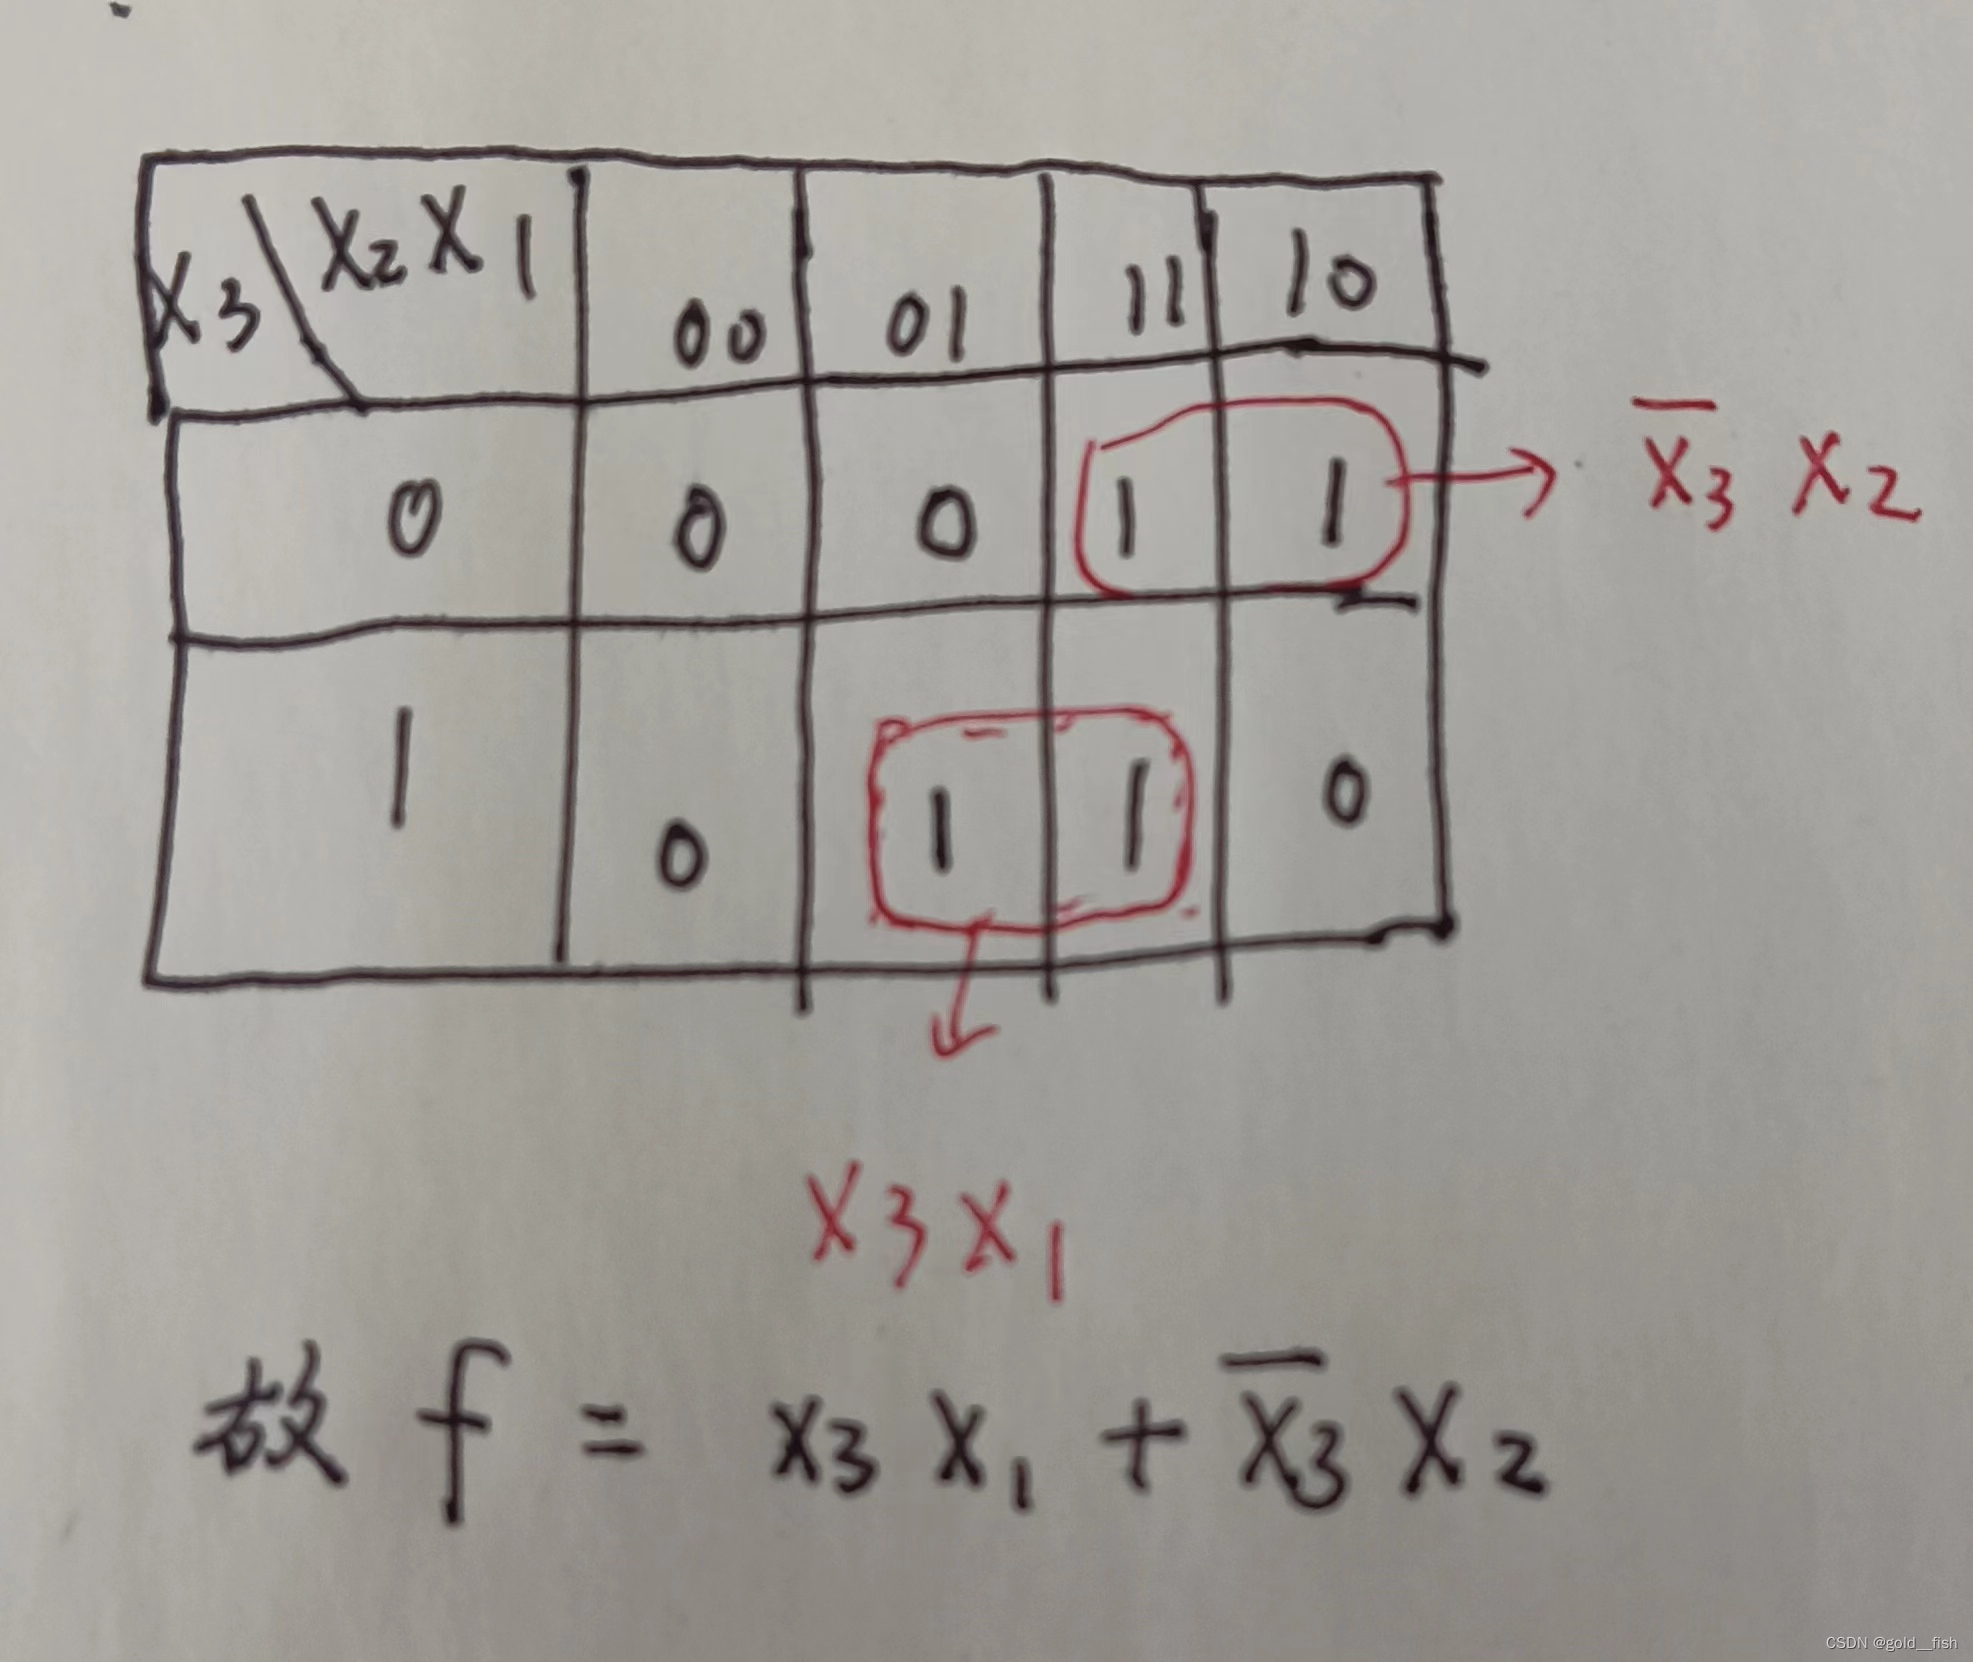 x3 \ x2 x1 00 01 11 10
0 0 0 1 1 → x̅3 x2
1 0 1 1 0
x3 x1
故 f = x3 x1 + x̅3 x2
CSDN @gold__fish